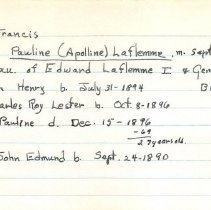 Francis
Pauline (Apolline) Laflemme, m. Sept
au. of Edward Laflemme I & Gen
n Henry b. July 31-1894 B
arles Roy Lester b. Oct. 8-1896
Pauline d. Dec. 15-1896
-69
27 years old.
John Edmund b. Sept. 24-1890